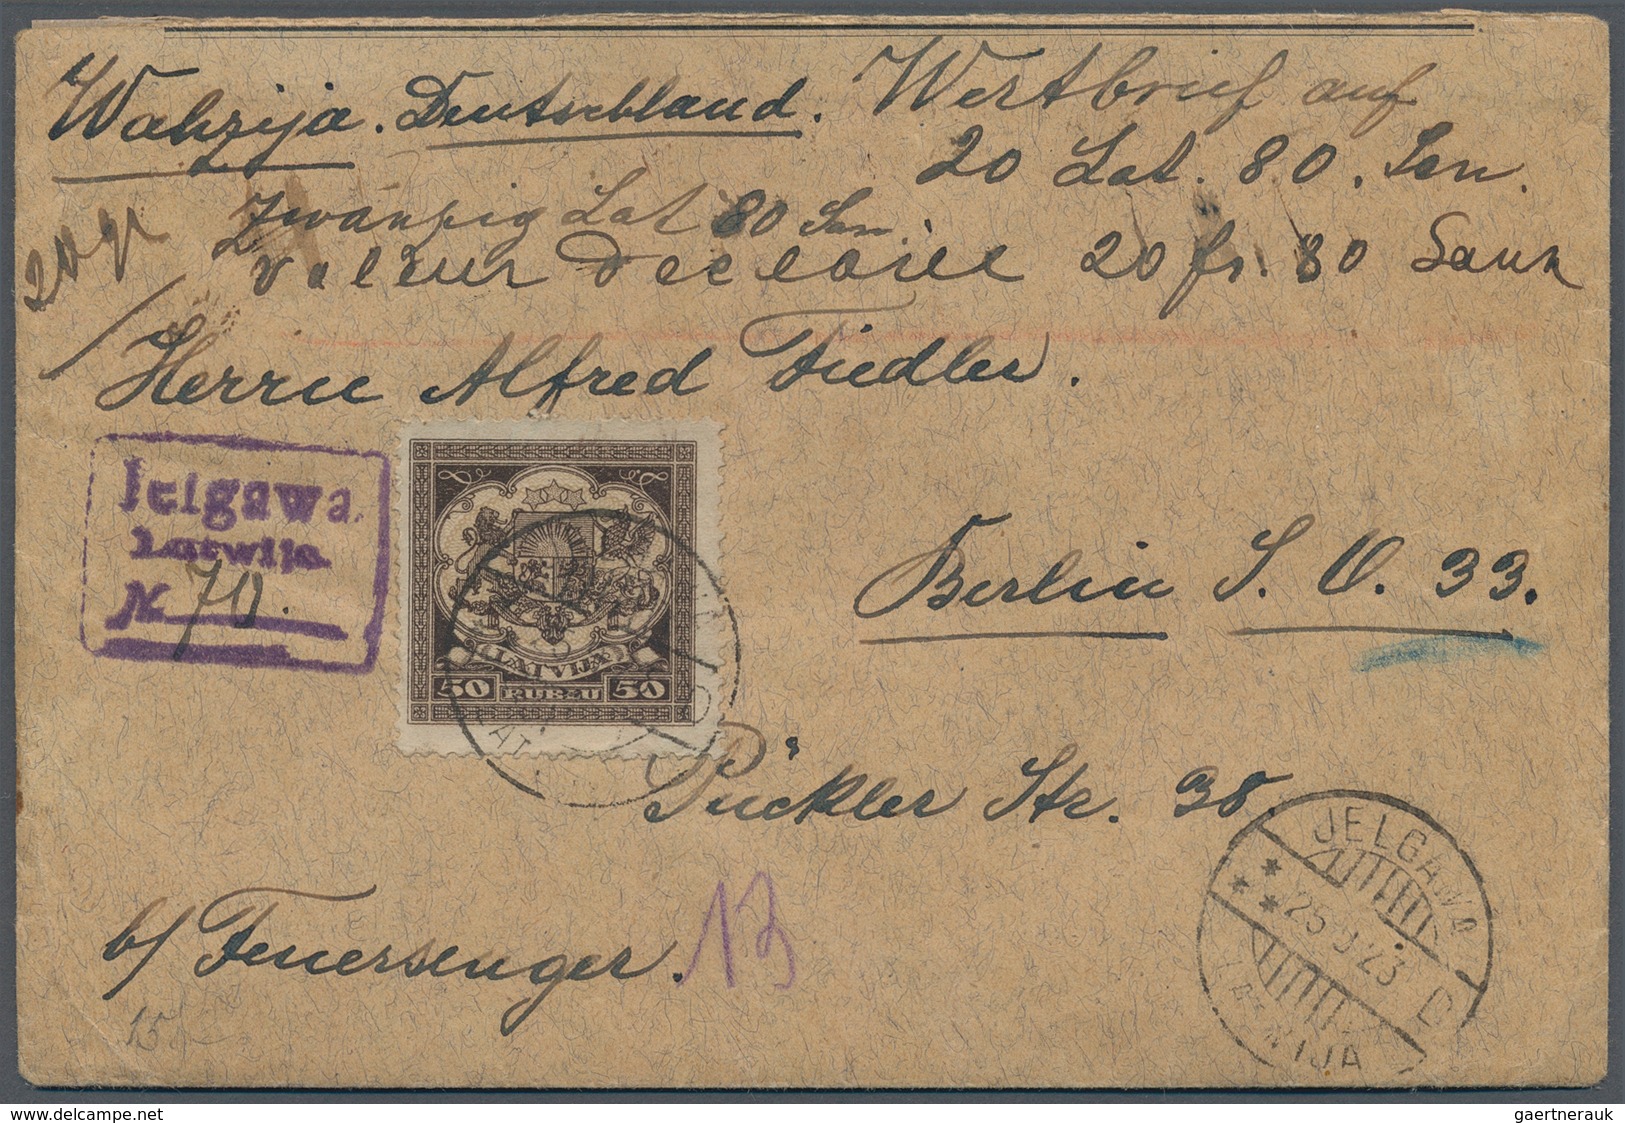 Wahzija. Deutschland. Wertbrief auf
20 Lat. 80. San.
Zwanzig Lat 80 San.
20 gr
valeur declarée 20 fr. 80 Sant
Herrn Alfred Fiedler.
Jelgawa
Latwija
N 70.
LATVIJA
50 RUBĻU 50
Berlin S. O. 33.
Pückler Str. 38.
JELGAVA
25 9 23
D
LATVIJA
b/ Feuersenger.
13
15
delcampe.net
gaertnerauk